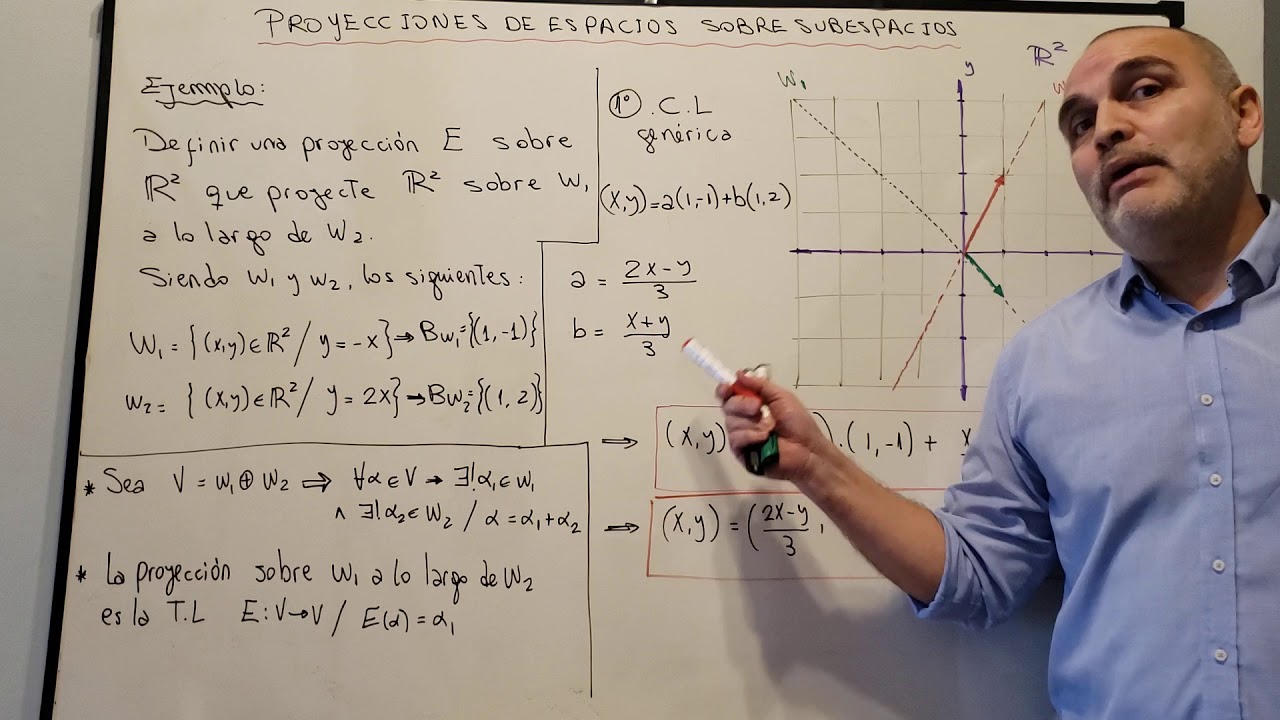 PROYECCIONES DE ESPACIOS SOBRE SUBESPACIOS
Ejemplo:
Definir una proyección E sobre
ℝ² que proyecte ℝ² sobre W₁
a lo largo de W₂.
Siendo W₁ y W₂, los siguientes:
W₁ = {(x,y)∈ℝ² / y=-x} → Bw₁={(1,-1)}
W₂ = {(x,y)∈ℝ² / y=2x} → Bw₂={(1,2)}
* Sea V = W₁ ⊕ W₂ ⇒ ∀α∈V → ∃!α₁∈W₁
∧ ∃!α₂∈W₂ / α=α₁+α₂
* La proyección sobre W₁ a lo largo de W₂
es la T.L E:V→V / E(α)=α₁
1° .C.L
genérica
(x,y)=a(1,-1)+b(1,2)
a = (2x-y)/3
b = (x+y)/3
⇒ (x,y) ).(1,-1) + x
⇒ (x,y) = (2x-y/3 ,
W₁
y
ℝ²
W